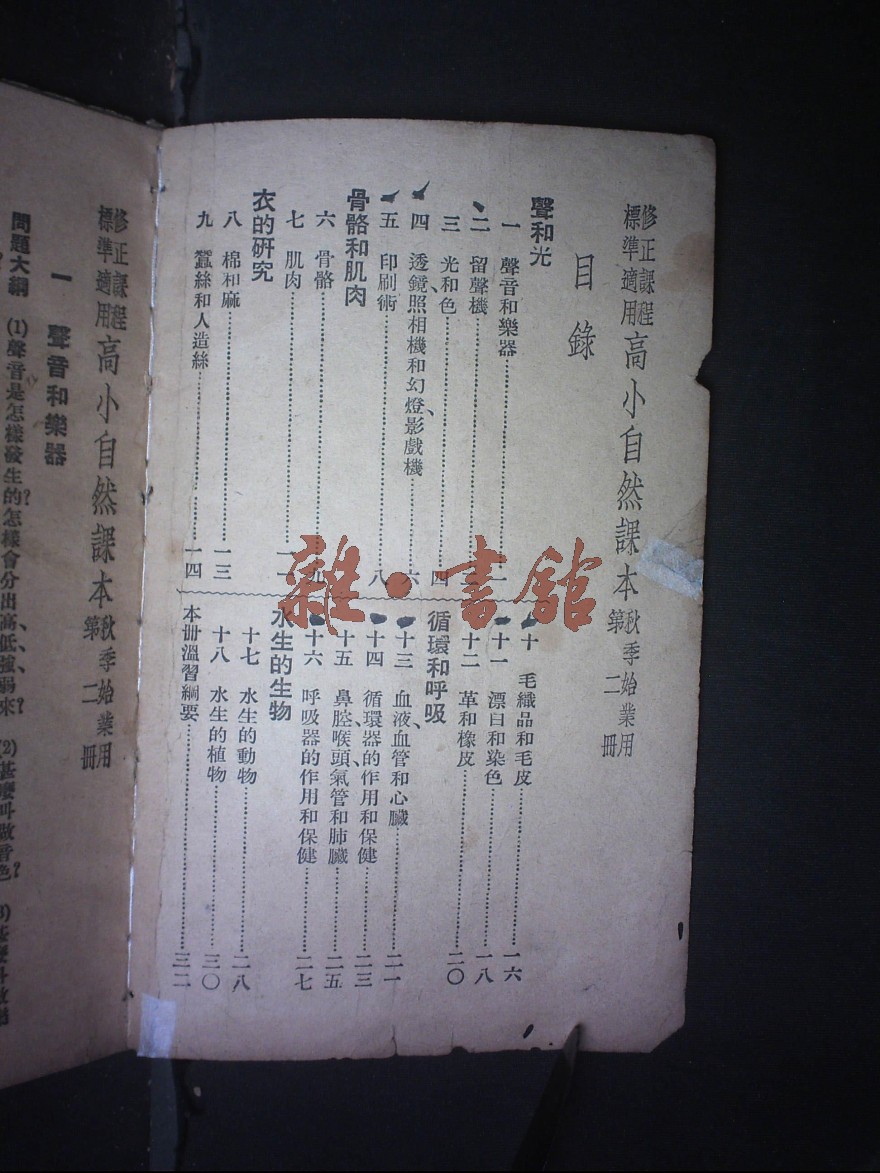 修正課程
標準適用
高小自然課本
秋季始業用
第二冊
目錄
聲和光
一 聲音和樂器
二 留聲機
三 光和色 四
四 透鏡、照相機和幻燈、影戲機 六
五 印刷術 八
骨骼和肌肉
六 骨骼 九
七 肌肉
衣的研究
八 棉和麻 一三
九 蠶絲和人造絲 一四
十 毛織品和毛皮 一六
十一 漂白和染色 一八
十二 革和橡皮 二〇
循環和呼吸
十三 血液、血管和心臟 二一
十四 循環器的作用和保健 二三
十五 鼻腔、喉頭、氣管和肺臟 二五
十六 呼吸器的作用和保健 二七
水生的生物
十七 水生的動物 二八
十八 水生的植物 三〇
本冊溫習綱要 三二
雜·書館
修正課程
標準適用
高小自然課本
秋季始業用
第二冊
一 聲音和樂器
問題大綱 (1)聲音是怎樣發生的?怎樣會分出高、低、強、弱來? (2)甚麼叫做音色?